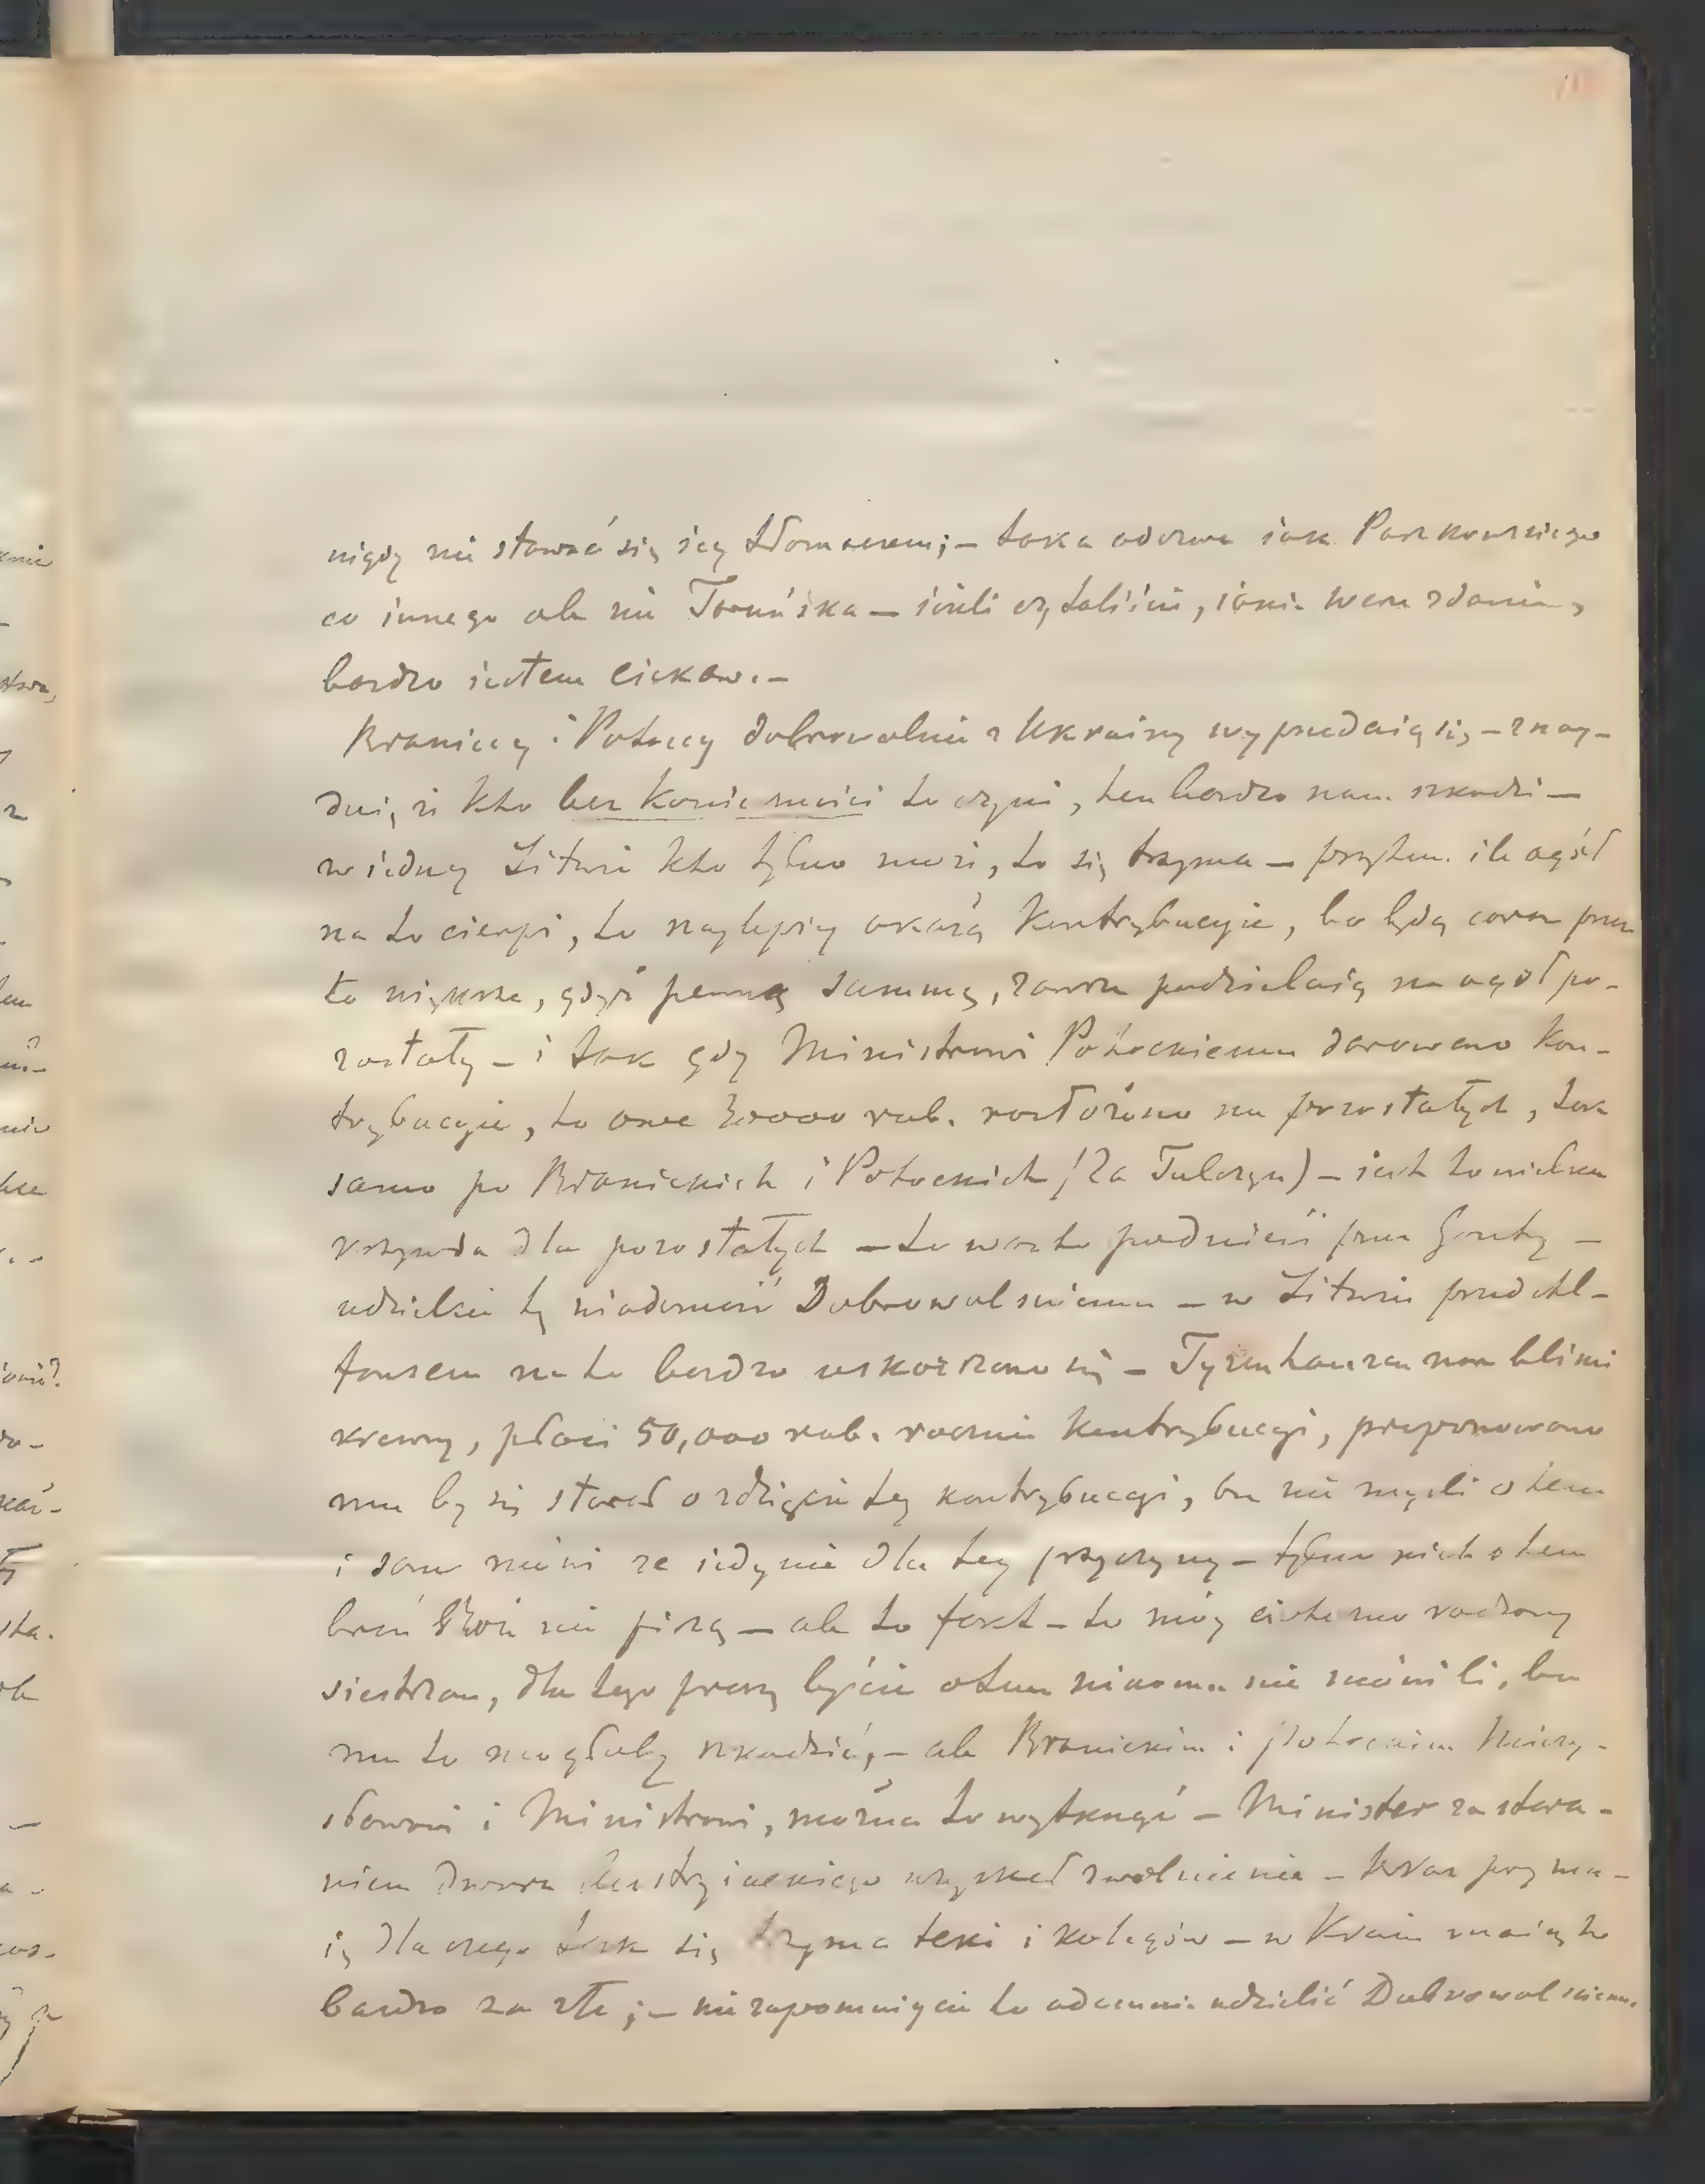 nigdy nie stawać się jey tłomaczem; – taka odezwa jak Paszkowskiego
co innego ale nie Tomúska – jeżeli czytaliście, jakie Wasze zdanie,
bardzo jestem ciekaw. –
Braniccy i Potoccy dobrowolnie z Ukrainy wyprzedaią się – znay-
duię, że kto bez konieczności to czyni, ten bardzo nam szkodzi –
w iedney Litwie kto tylko może, to się trzyma – przytem ile ogół
na to cierpi, to naylepiey okażą Kontrybucyie, bo będą coraz przez
to większe, gdyż pewną summę, zawsze podzielaią na ogół po-
zostały – i tak gdy Ministrowi Potockiemu darowano Kon-
trybucyie, to owe 30000 rub. rozłożono na pozostałych, tak
samo po Branickich i Potockich (za Tulczyn) – iest to wielka
krzywda dla pozostałych – to warto podnieść przez Gazety –
udzielcie tę wiadomość Dobrowolskiemu – w Litwie przed Al-
fonsem na to bardzo uskarżano się – Tyzenhauzen nasz bliski
krewny, płaci 50,000 rub. rocznie Kontrybucyi, proponowano
mu by się starał o zdjęcie tey kontrybucyi, on nie myśli o tem
i sam mówi że iedynie dla tey przyczyny – tylko niech o tem
broń Boże nie piszą – ale to fakt – to móy cioteczno rodzony
siestrzan, dla tego proszę byście o tem nikomu nie mówili, bo
mu to mogłoby szkodzić, – ale Branickim i Potockim Mieczy-
sławowi i Ministrowi, można to wytknąć – Minister za stara-
niem Dworu Austryiackiego uzyskał zwolnienie – teraz poyma-
ię dla czego tak się trzyma teki i kolegów – w Kraiu maią to
bardzo za złe; – nie zapomniycie to odemnie udzielić Dobrowolskiemu.